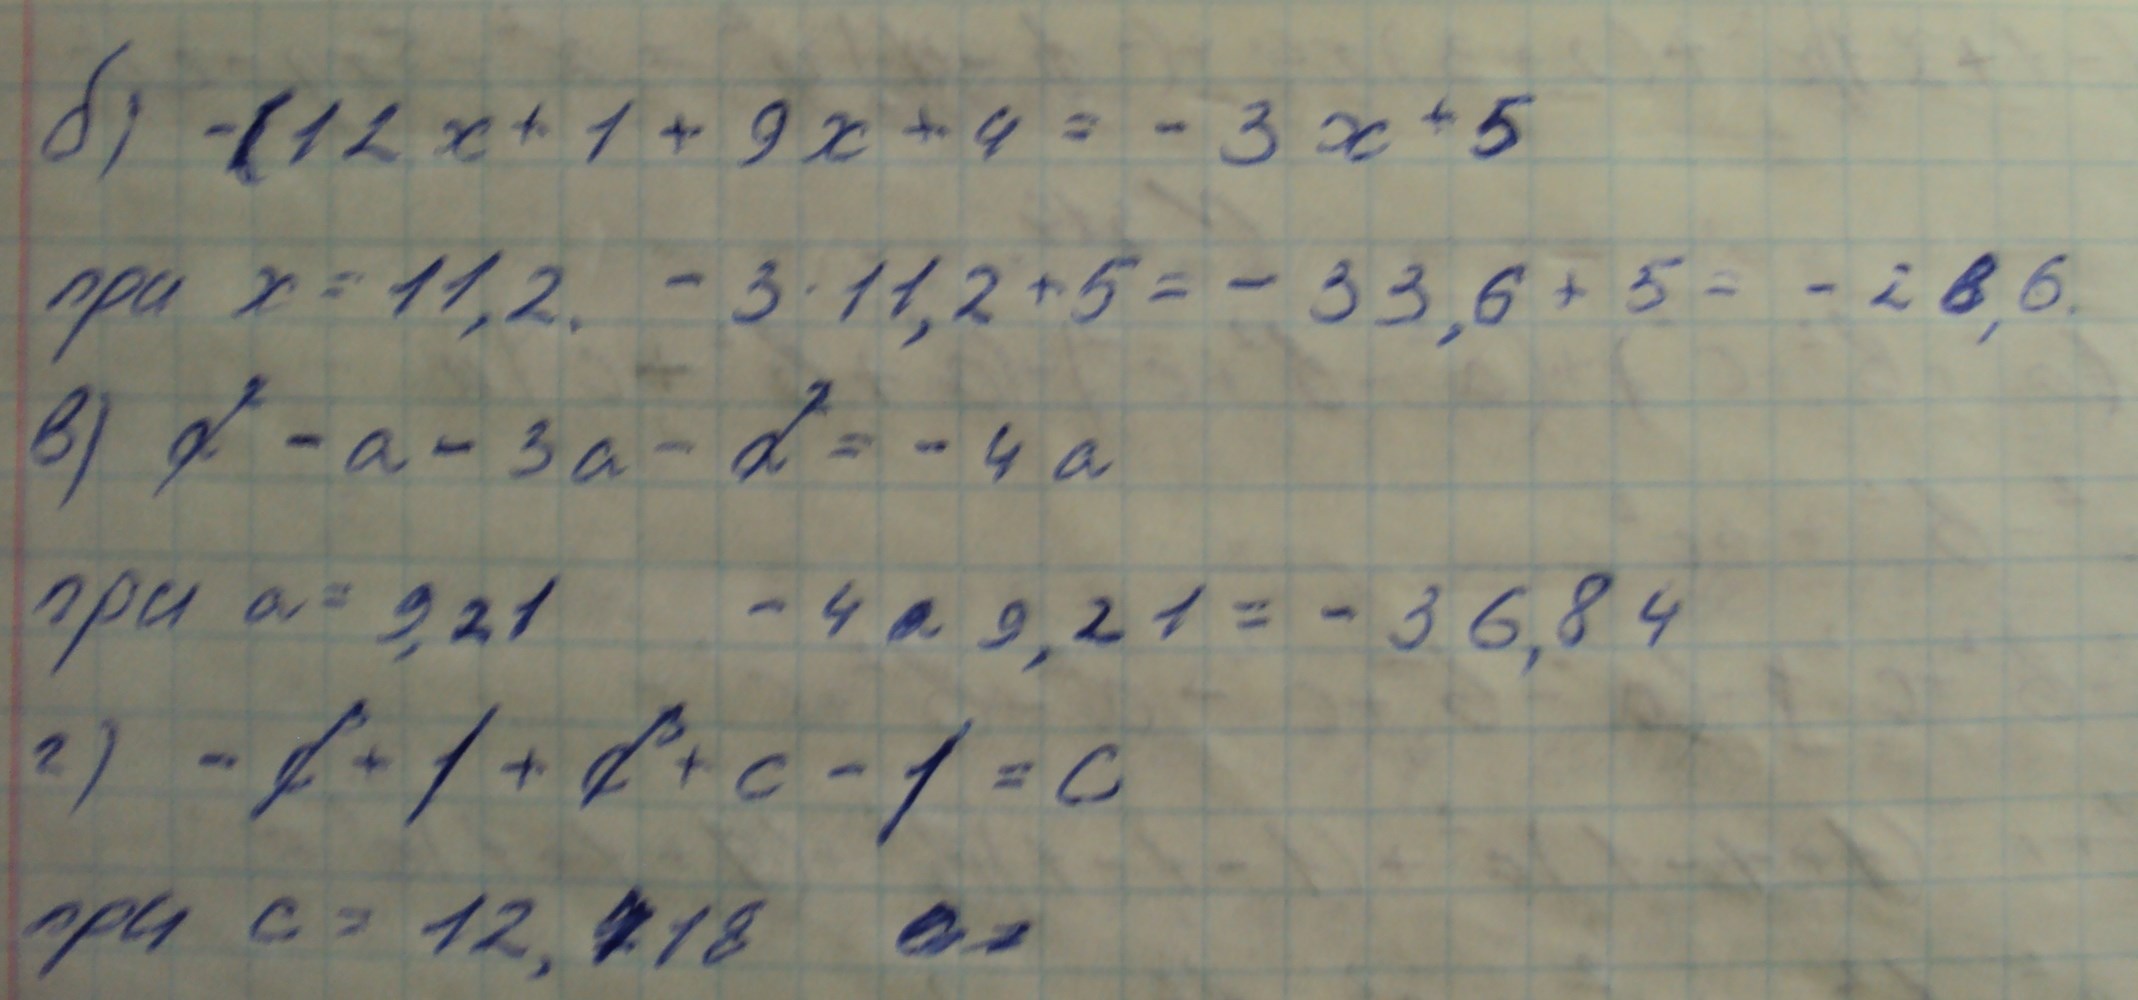 б) -12x+1+9x+4=-3x+5
при x=11,2. -3·11,2+5=-33,6+5=-28,6.
в) a²-a-3a-a²=-4a
при a=9,21 -4·9,21=-36,84
г) -c³+1+c³+c-1=c
при c=12,18